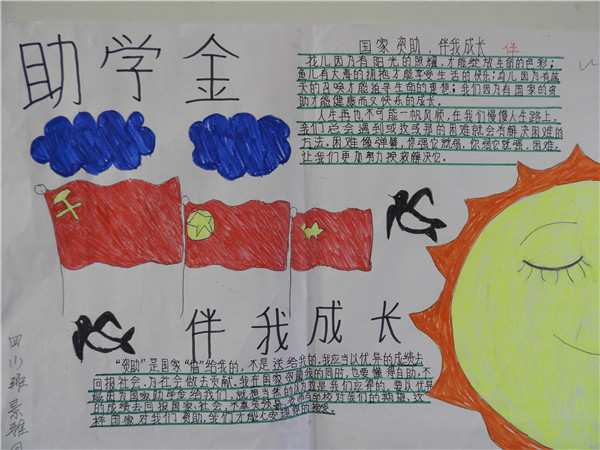 助学金
国家资助，伴我成长 伴
花儿因为有阳光的照耀，才能绽放生命的色彩；
鱼儿有大海的拥抱才能享受生活的快乐；鸟儿因为有蓝
天的召唤才能追寻生命的理想；我们因为有国家的资
助才能健康而又快乐的成长。
人生再也不可能一帆风顺，在我们慢慢人生路上，
我们总会遇到或这或那的困难就会有解决困难的
方法。困难像弹簧，你强它就弱，你弱它就强，困难，
让我们更加努力解决它。
伴我成长
"资助"是国家"借"给我的，不是送给我的，我应当以优异的成绩去
回报社会，为社会做去贡献。我在国家资助我的同时，也要懂得自助，不
能因为国家助学金给我们，就想当然的以为这是我们应得的，要以优异
的成绩去回报国家、社会，不辜负
样国家对我们资助，我们才能
四川 班 景雅